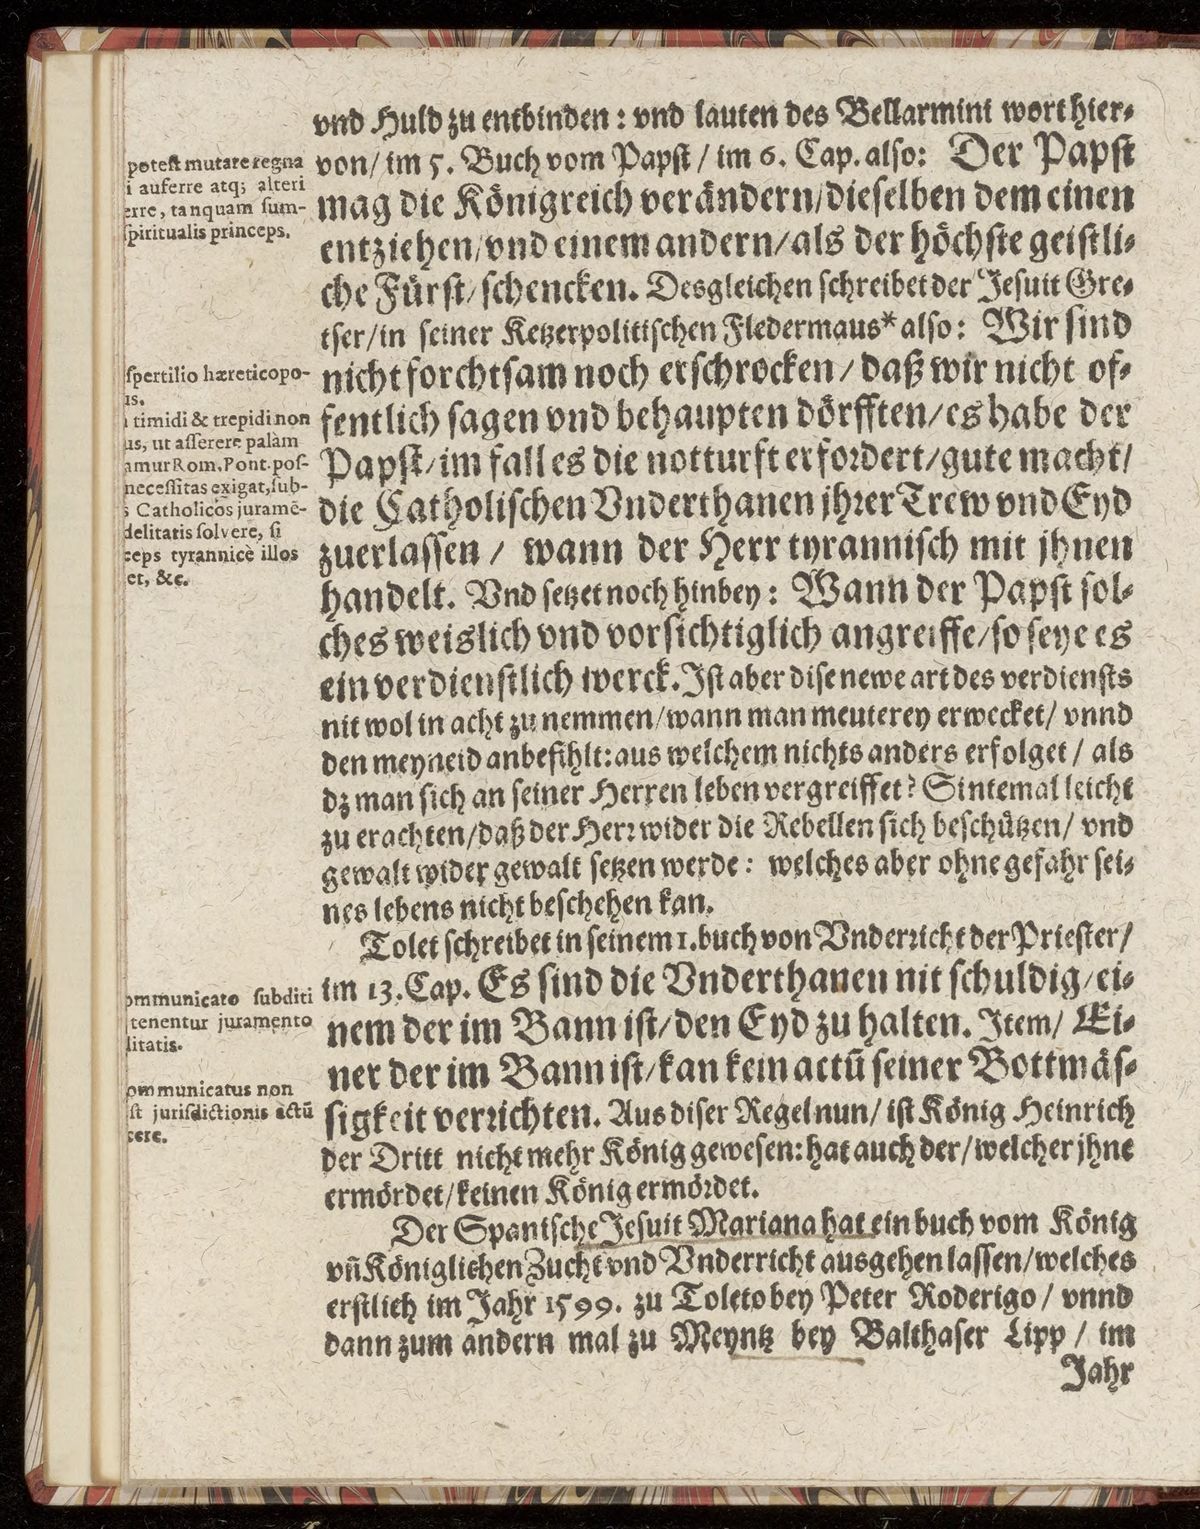 vnd Huld zu entbinden: vnd lauten des Bellarmini wort hier-
von/ im 5. Buch vom Papst/ im 6. Cap. also: Der Papst
mag die Königreich verändern/ dieselben dem einen
entziehen/ vnd einem andern/ als der höchste geistli-
che Fürst/ schencken. Desgleichen schreibet der Jesuit Gre-
tser/ in seiner Ketzerpolitischen Fledermaus* also: Wir sind
nicht forchtsam noch erschrocken/ daß wir nicht of-
fentlich sagen vnd behaupten dörfften/ es habe der
Papst/ im fall es die notturft erfordert/ gute macht/
die Catholischen Vnderthanen jhrer Trew vnd Eyd
zuerlassen/ wann der Herr tyrannisch mit jhnen
handelt. Vnd setzet noch hinbey: Wann der Papst sol-
ches weislich vnd vorsichtiglich angreiffe/ so seye es
ein verdienstlich werck. Ist aber dise newe art des verdiensts
nit wol in acht zu nemmen/ wann man meuterey erwecket/ vnnd
den meyneid anbefihlt: aus welchem nichts anders erfolget/ als
dz man sich an seiner Herren leben vergreiffet? Sintemal leicht
zu erachten/ daß der Herr wider die Rebellen sich beschützen/ vnd
gewalt wider gewalt setzen werde: welches aber ohne gefahr sei-
nes lebens nicht beschehen kan.
Tolet schreibet in seinem 1. buch von Vnderricht der Priester/
im 13. Cap. Es sind die Vnderthanen nit schuldig/ ei-
nem der im Bann ist/ den Eyd zu halten. Item/ Ei-
ner der im Bann ist/ kan kein actū seiner Bottmäs-
sigkeit verrichten. Aus diser Regel nun/ ist König Heinrich
der Dritt nicht mehr König gewesen: hat auch der/ welcher jhne
ermördet/ keinen König ermördet.
Der Spanische Jesuit Mariana hat ein buch vom König
vñ Königlichen Zucht vnd Vnderricht ausgehen lassen/ welches
erstlich im Jahr 1599. zu Toleto bey Peter Roderigo/ vnnd
dann zum andern mal zu Meyntz bey Balthaser Lipp/ im
Jahr
potest mutare regna
i auferre atq; alteri
erre, tanquam sum-
spiritualis princeps.
spertilio hæreticopo-
is.
timidi & trepidi non
us, ut asserere palàm
amur Rom. Pont. pos-
necessitas exigat, sub-
s Catholicos juramē-
delitatis solvere, si
ceps tyrannicè illos
et, &c.
ommunicato subditi
tenentur juramento
litatis.
ommunicatus non
st jurisdictionis actū
cere.